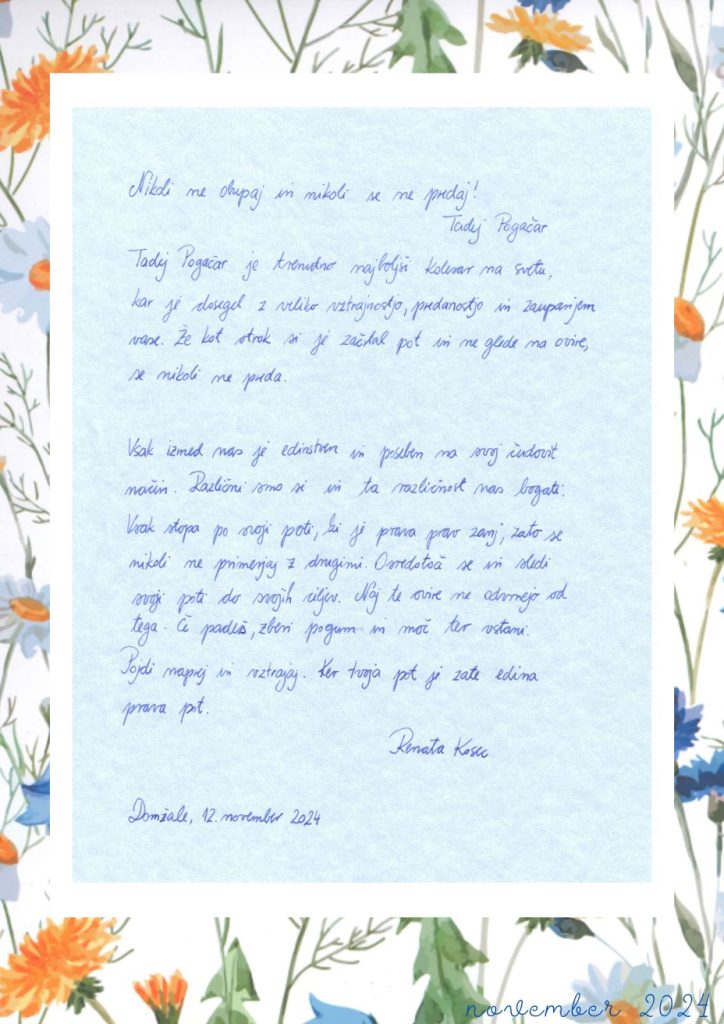 Nikoli ne obupaj in nikoli se ne predaj!
Tadej Pogačar
Tadej Pogačar je trenutno najboljši kolesar na svetu,
kar je dosegel z veliko vztrajnostjo, predanostjo in zaupanjem
vase. Že kot otrok si je začrtal pot in ne glede na ovire,
se nikoli ne preda.
Vsak izmed nas je edinstven in poseben na svoj čudovit
način. Različni smo si in ta različnost nas bogati.
Vsak stopa po svoji poti, ki je prava prav zanj, zato se
nikoli ne primerjaj z drugimi. Osredotoči se in sledi
svoji poti do svojih ciljev. Naj te ovire ne odvrnejo od
tega. Če padeš, zberi pogum in moč ter vstani.
Pojdi naprej in vztrajaj. Ker tvoja pot je zate edina
prava pot.
Renata Kosec
Domžale, 12. november 2024
november 2024